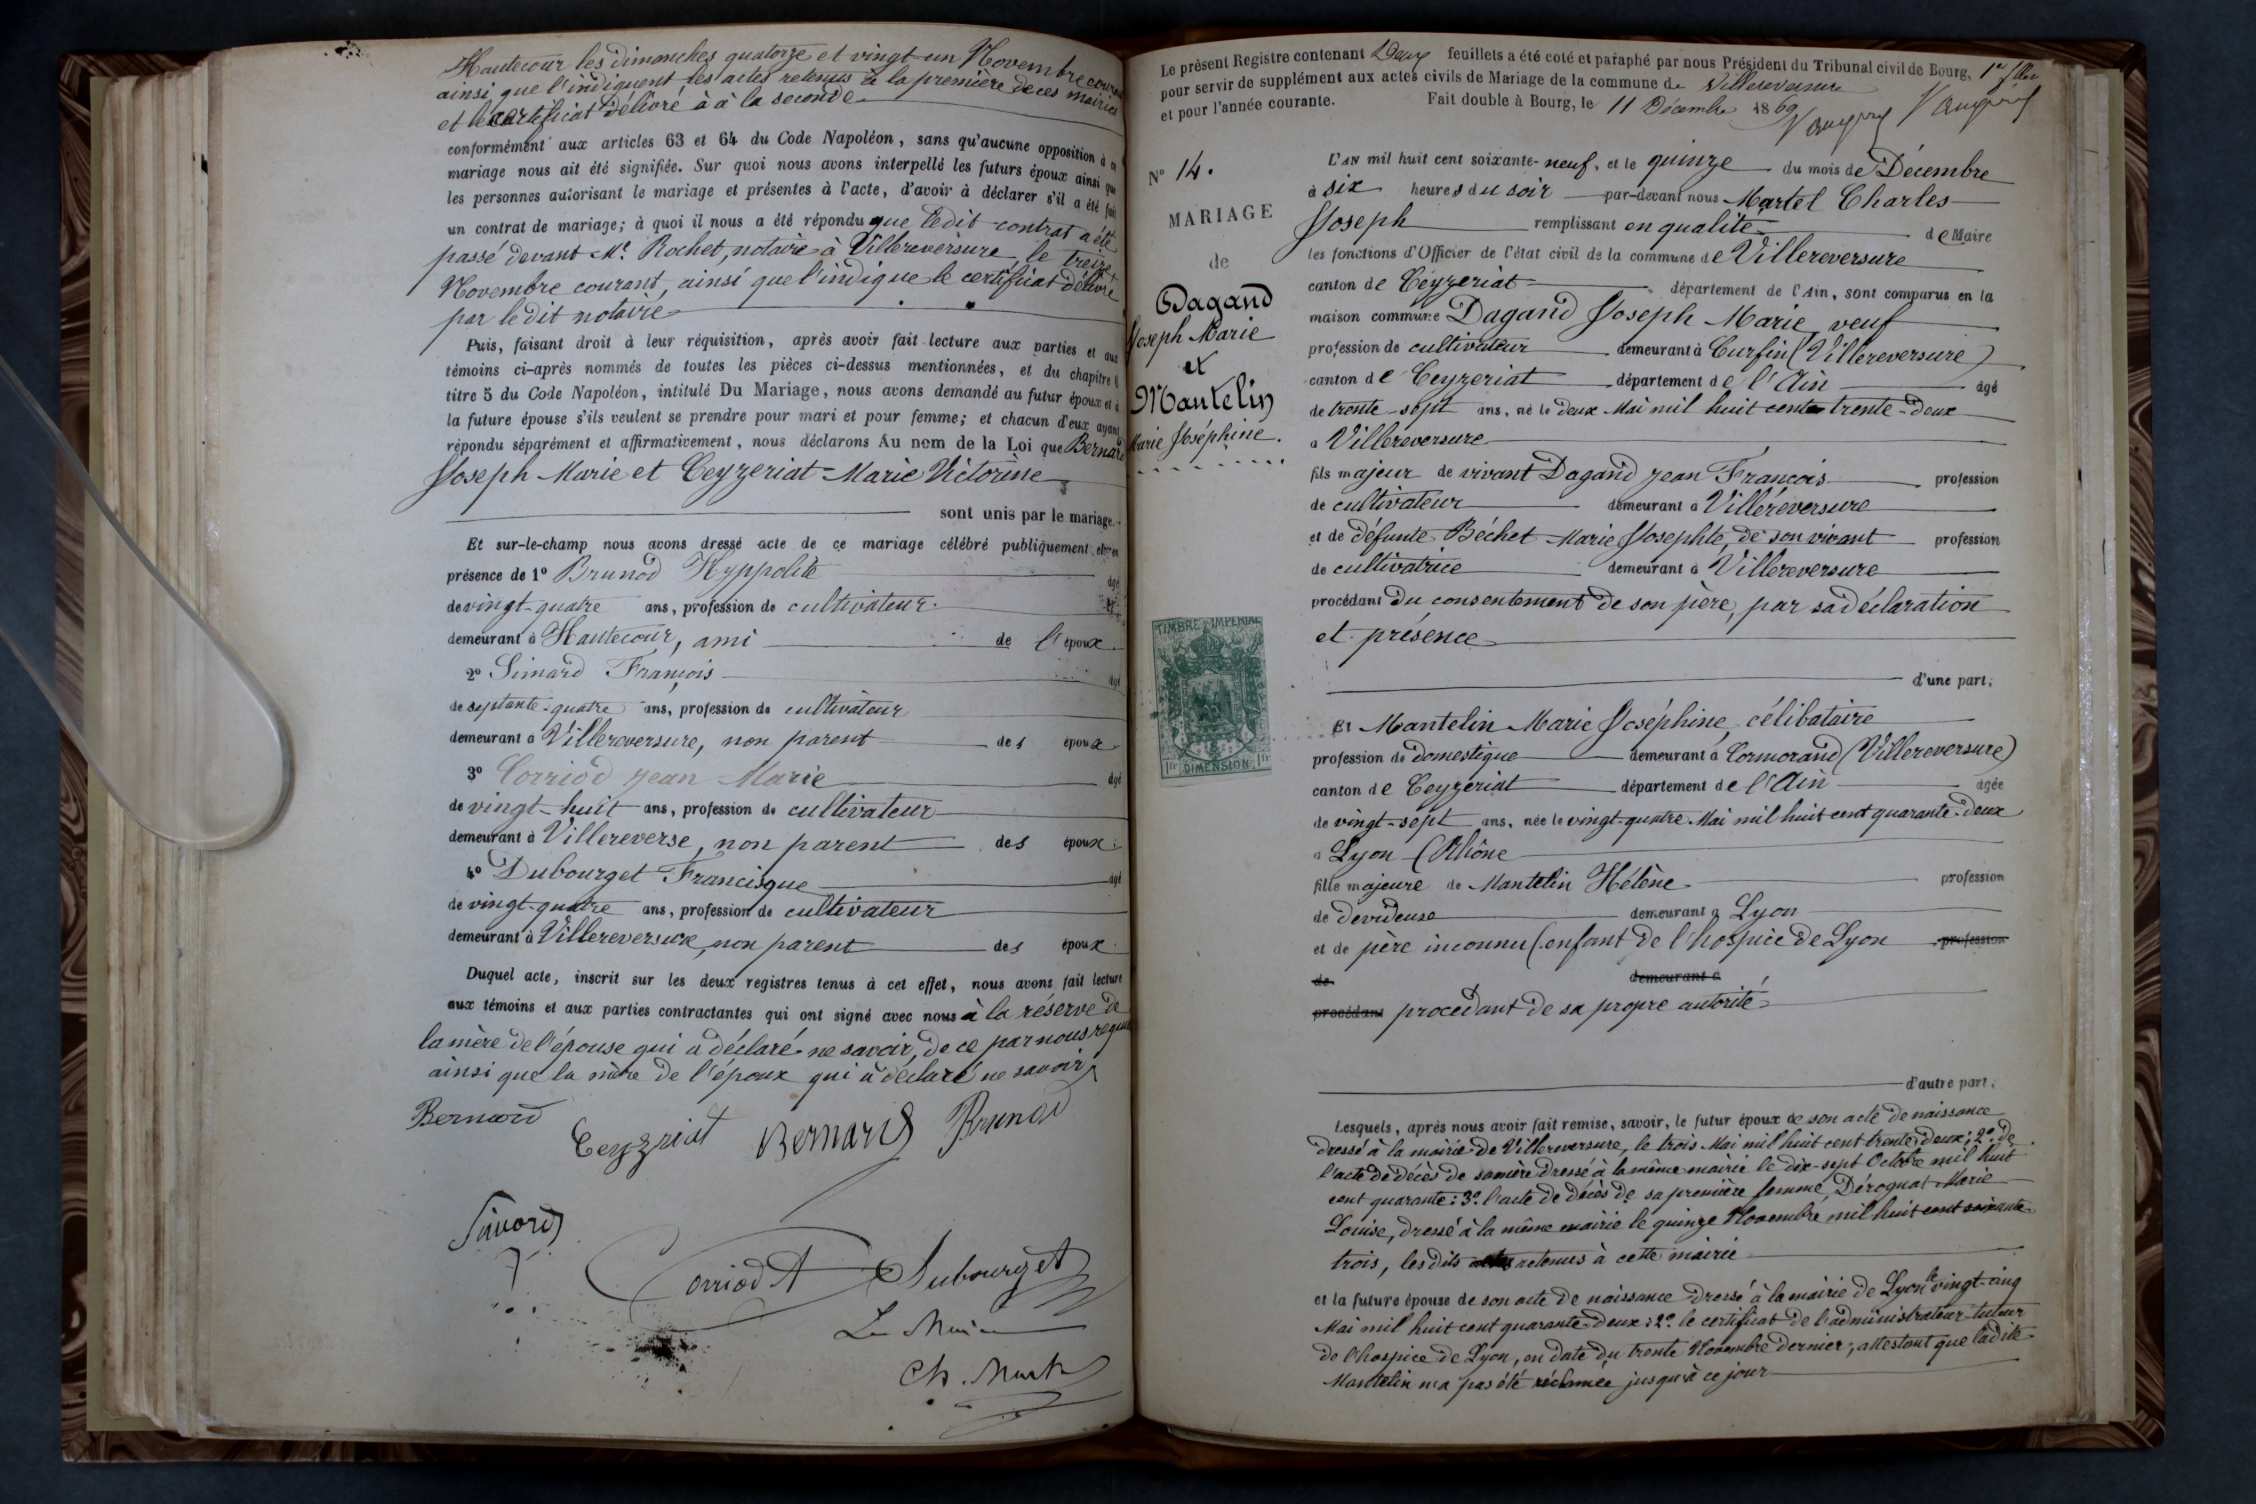 Hautecour les dimanches quatorze et vingt-un Novembre courant
ainsi que l'indiquent les actes retenus à la première de ces mairies
et le certificat délivré à à la seconde
conformément aux articles 63 et 64 du Code Napoléon, sans qu'aucune opposition à ce
mariage nous ait été signifiée. Sur quoi nous avons interpellé les futurs époux ainsi que
les personnes autorisant le mariage et présentes à l'acte, d'avoir à déclarer s'il a été fait
un contrat de mariage; à quoi il nous a été répondu que ledit contrat a été
passé devant Me. Rochet, notaire à Villereversure, le treize
Novembre courant, ainsi que l'indique le certificat délivré
par le dit notaire
Puis, faisant droit à leur réquisition, après avoir fait lecture aux parties et aux
témoins ci-après nommés de toutes les pièces ci-dessus mentionnées, et du chapitre 6
titre 5 du Code Napoléon, intitulé Du Mariage, nous avons demandé au futur époux et à
la future épouse s'ils veulent se prendre pour mari et pour femme; et chacun d'eux ayant
répondu séparément et affirmativement, nous déclarons Au nom de la Loi que Bernard
Joseph Marie et Ceyzeriat Marie Victorine
sont unis par le mariage.
Et sur-le-champ nous avons dressé acte de ce mariage célébré publiquement, en
présence de 1º Brunod Hyppolite âgé
de vingt-quatre ans, profession de cultivateur
demeurant à Hautecour, ami de l'époux.
2º Simard François âgé
de septante-quatre ans, profession de cultivateur
demeurant à Villereversure, non parent des époux
3º Corriod Jean Marie âgé
de vingt-huit ans, profession de cultivateur
demeurant à Villereverse, non parent des époux
4º Dubourget Francisque âgé
de vingt-quatre ans, profession de cultivateur
demeurant à Villereversure, non parent des époux
Duquel acte, inscrit sur les deux registres tenus à cet effet, nous avons fait lecture
aux témoins et aux parties contractantes qui ont signé avec nous à la réserve de
la mère de l'épouse qui a déclaré ne savoir, de ce par nous requis
ainsi que la mère de l'époux qui a déclaré ne savoir
Bernard Ceyzeriat Bernard Brunod
Corriod Dubourget
Le Maire
Ch. Martel
Le présent Registre contenant Deux feuillets a été coté et paraphé par nous Président du Tribunal civil de Bourg, 1er fllet
pour servir de supplément aux actes civils de Mariage de la commune de Villereversure
et pour l'année courante. Fait double à Bourg, le 11 Décembre 1869
Nº 14.
MARIAGE
de
Dagand
Joseph Marie
et
Mantelin
Marie Joséphine.
TIMBRE IMPERIAL
1 fr DIMENSION 1 fr
L'AN mil huit cent soixante-neuf, et le quinze du mois de Décembre
à six heures du soir par-devant nous Martel Charles
Joseph remplissant en qualité de Maire
les fonctions d'Officier de l'état civil de la commune de Villereversure
canton de Ceyzeriat département de l'Ain, sont comparus en la
maison commune Dagand Joseph Marie, veuf
profession de cultivateur demeurant à Curfin (Villereversure)
canton de Ceyzeriat département de l'Ain âgé
de trente-sept ans, né le deux Mai mil huit cent trente-deux
à Villereversure
fils majeur de vivant Dagand Jean François profession
de cultivateur demeurant à Villereversure
et de défunte Béchet Marie Josephte, de son vivant profession
de cultivatrice demeurant à Villereversure
procédant du consentement de son père, par sa déclaration
et présence
d'une part.
Et Mantelin Marie Joséphine, célibataire
profession de domestique demeurant à Cormorand (Villereversure)
canton de Ceyzeriat département de l'Ain âgée
de vingt-sept ans, née le vingt-quatre Mai mil huit cent quarante-deux
à Lyon (Rhône
fille majeure de Mantelin Hélène profession
de devideuse demeurant à Lyon
et de père inconnu (enfant de l'hospice de Lyon profession
de demeurant à
procédant procédant de sa propre autorité
d'autre part.
Lesquels, après nous avoir fait remise, savoir, le futur époux de son acte de naissance
dressé à la mairie de Villereversure, le trois Mai mil huit cent trente-deux; 2º. de
l'acte de décès de sa mère dressé à la même mairie le dix-sept Octobre mil huit
cent quarante: 3º. l'acte de décès de sa première femme Dérognat Marie
Louise, dressé à la même mairie le quinze Novembre mil huit cent soixante-
trois, les dits actes retenus à cette mairie
et la future épouse de son acte de naissance dressé à la mairie de Lyon le vingt-cinq
Mai mil huit cent quarante-deux: 2º. le certificat de l'administrateur-tuteur
de l'hospice de Lyon, en date du trente Novembre dernier, attestant que ladite
Mantelin n'a pas été réclamée jusqu'à ce jour